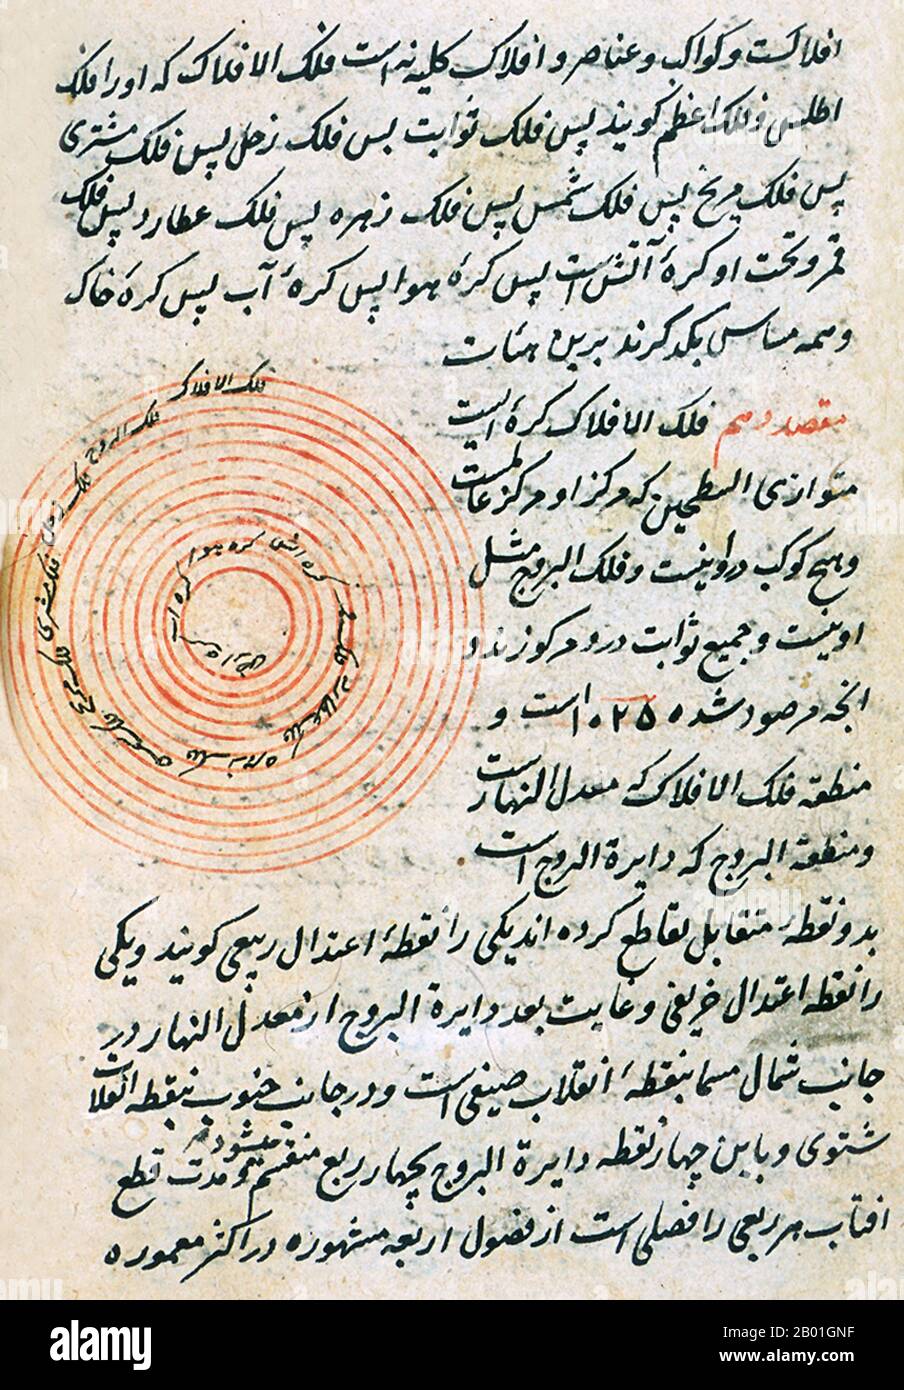 افلاکست و کواکب و عناصر و افلاک کلیه نه است فلک الافلاک که او را فلک
اطلس و فلک اعظم کویند پس فلک ثوابت پس فلک زحل پس فلک مشتری
پس فلک مریخ پس فلک شمس پس فلک زهره پس فلک عطارد پس فلک
قمر و تحت او کرهٔ آتش است پس کرهٔ هوا پس کرهٔ آب پس کرهٔ خاک
و همه مماس یکدیکرند برین هیئات
مقصد دهم فلک الافلاک کرهٔ ایست
متوازی السطحین که مرکز او مرکز عالمست
و هیچ کوکب در او نیست و فلک البروج مثل
اوینست و جمیع ثوابت درو مرکوزند و
انچه مرصود شده ۱۰۲۵ است و
منطقه فلک الافلاک که معدل النهار است
و منطقة البروج که دایرة البروج است
بدو نقطهٔ متقابل تقاطع کرده اند یکی را نقطهٔ اعتدال ربیعی کویند و یکی
را نقطه اعتدال خریفی و غایت بعد دایرة البروج از معدل النهار در
جانب شمال مسما بنقطهٔ انقلاب صیفی است و در جانب جنوب بنقطه انقلاب
شتوی و باین چهار نقطه دایرة البروج بچهار ربع منقسم میشود و مدت قطع
افتاب هر ربعی را فصلی است از فصول اربعه مشهوره در اکثر معموره
فلک الافلاک
فلک البروج
فلک زحل
فلک مشتری
فلک مریخ
فلک شمس
فلک زهره
فلک عطارد
فلک قمر
کره اتش
کره هوا
کره اب
کره ارض
alamy
Image ID: 2B01GNF
www.alamy.com